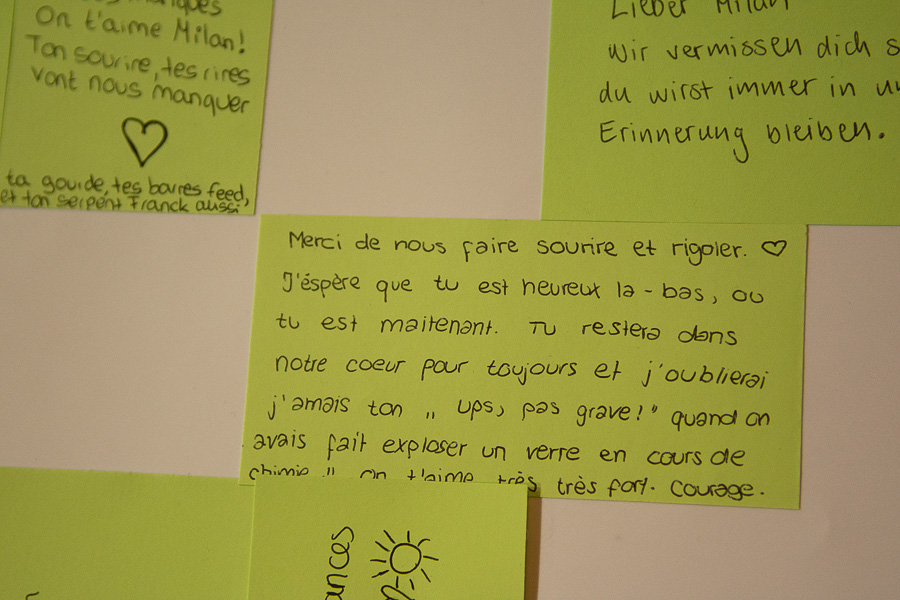 manques
On t'aime Milan!
Ton sourire, tes rires
vont nous manquer
ta gourde, tes barres feed,
et ton serpent Franck aussi
Lieber Milan
Wir vermissen dich
du wirst immer in
Erinnerung bleiben.
Merci de nous faire sourire et rigoler. ♡
J'éspère que tu est heureux la-bas, ou
tu est maitenant. Tu restera dans
notre coeur pour toujours et j'oublierai
j'amais ton „ ups, pas grave!" quand on
avais fait exploser un verre en cours de
chimie " on t'aime très très fort. Courage.
ances